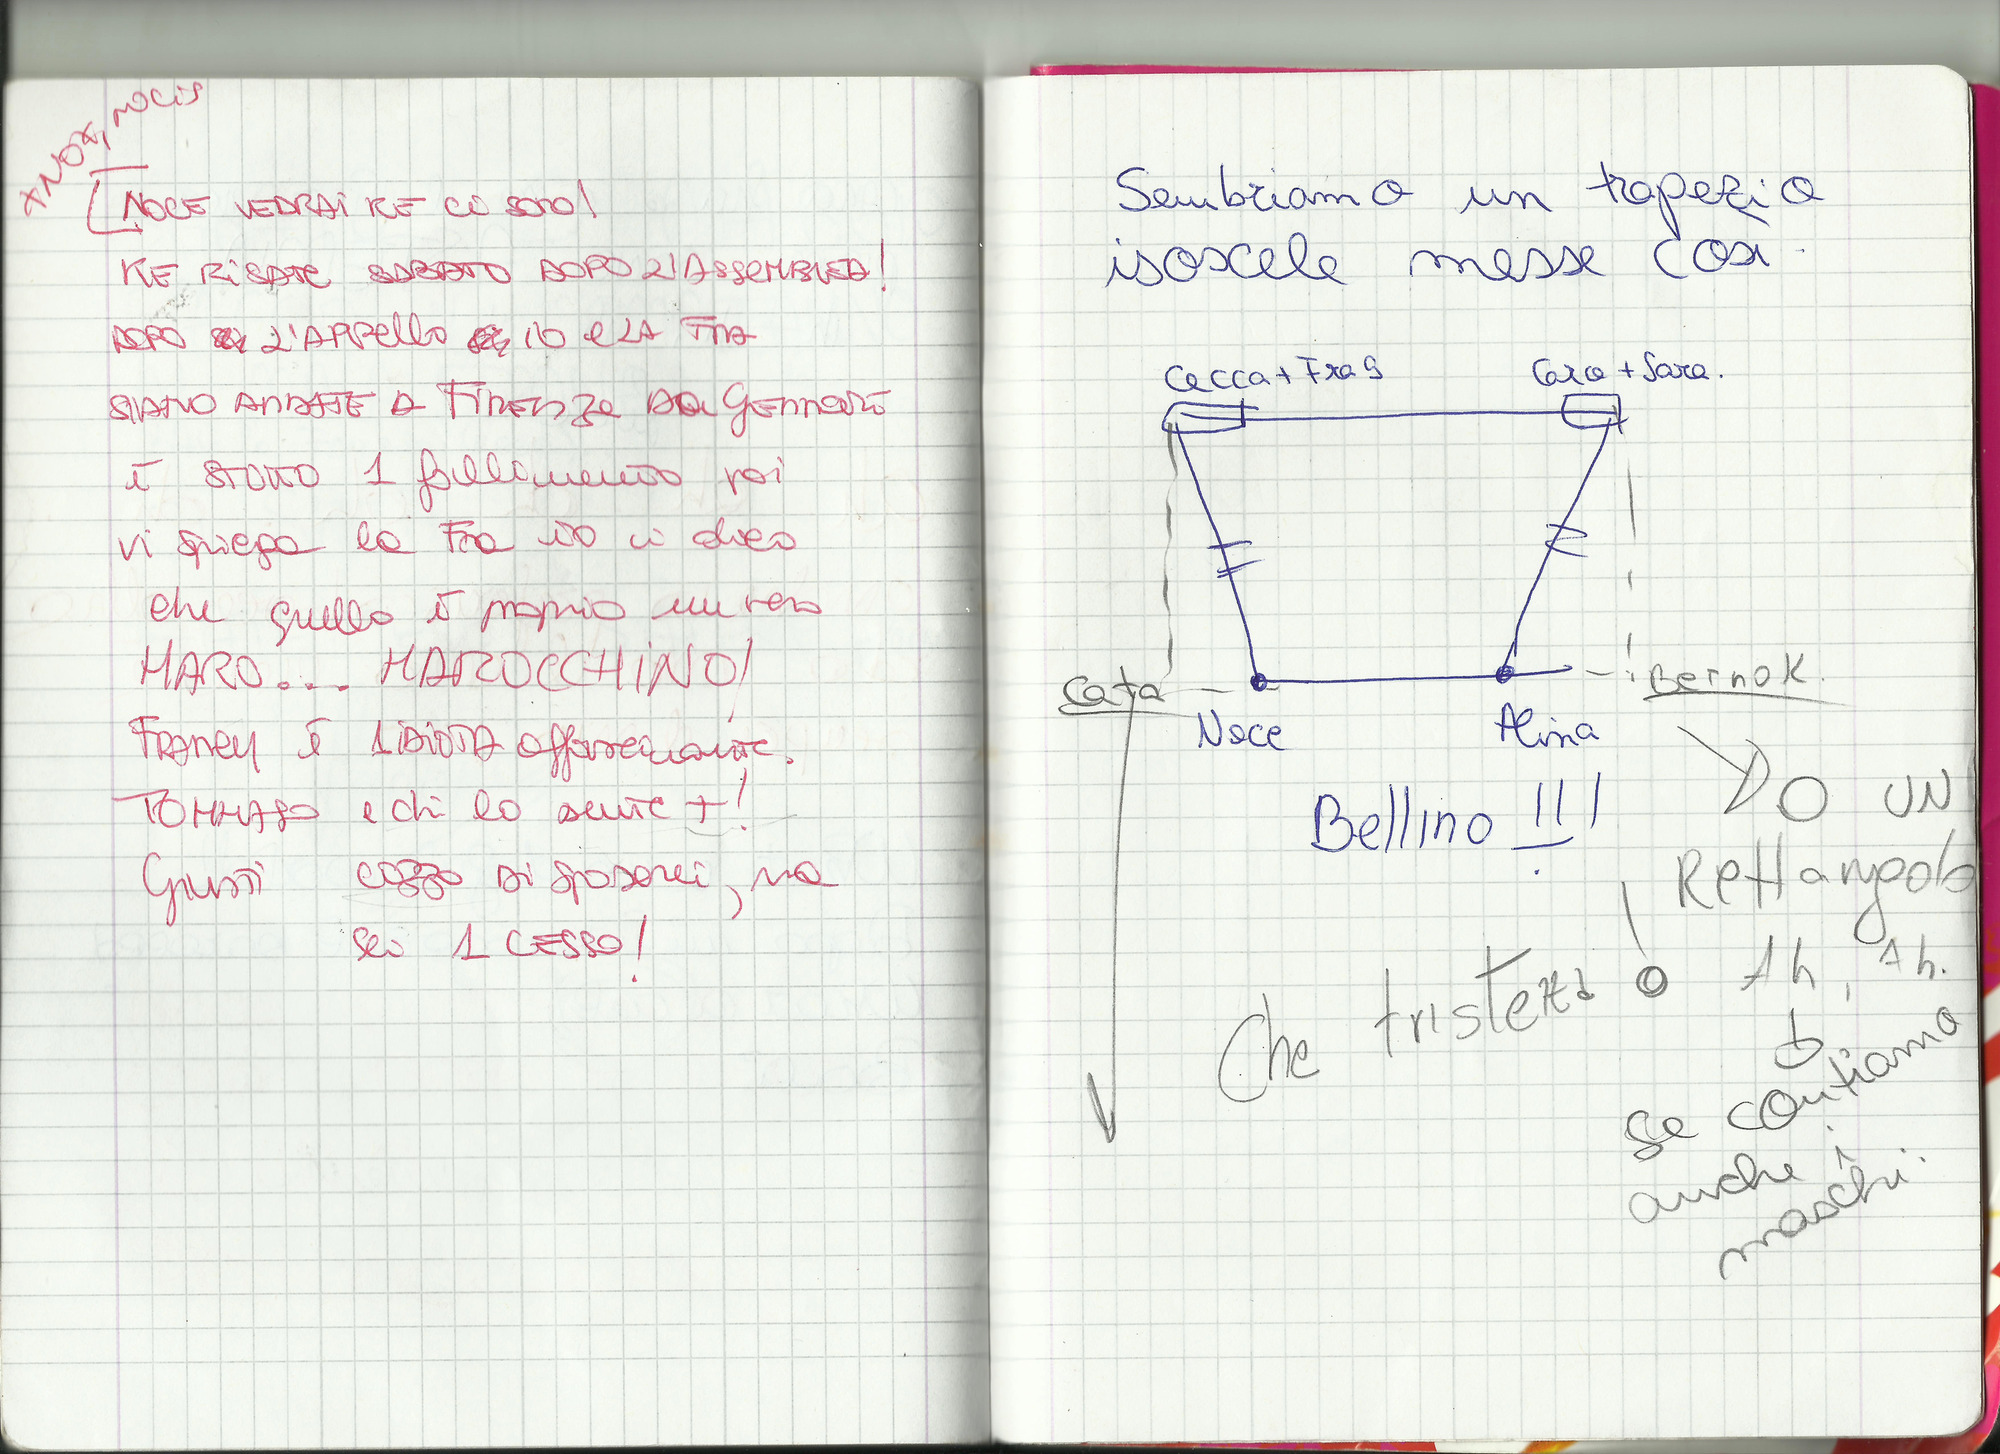 NOCE VEDRAI KE CI SONO!
KE RISATE SABATO DOPO L'ASSEMBLEA!
DOPO L'APPello io e LA FRA
SIAMO ANDATE A FIRENZE DA Gennaro
È STATO 1 fallimento poi
vi spiega la Fra io vi dico
che quello è proprio un vero
MARO.... MAROCCHINO!
FRANCY È 1 IDIOTA affascinante.
TOMMASO e chi lo sente +!
Giusti cazzo di sposarci, ma
sei 1 CESSO!
Sembriamo un trapezio
isoscele messe così.
Cecca + Fra S
Caro + Sara.
Cata
Bernok.
Noce
Alina
Bellino !!!
O UN
Rettangolo
Ah, Ah.
Che tristezza
se contiamo
anche i
maschi.